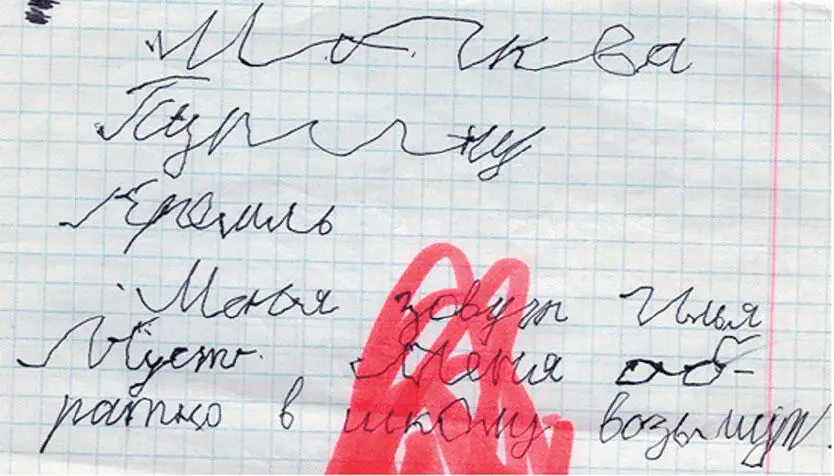 Москва
Путину
Кремль
Меня зовут Илья
Пусть меня об-
ратно в школу возьмут.